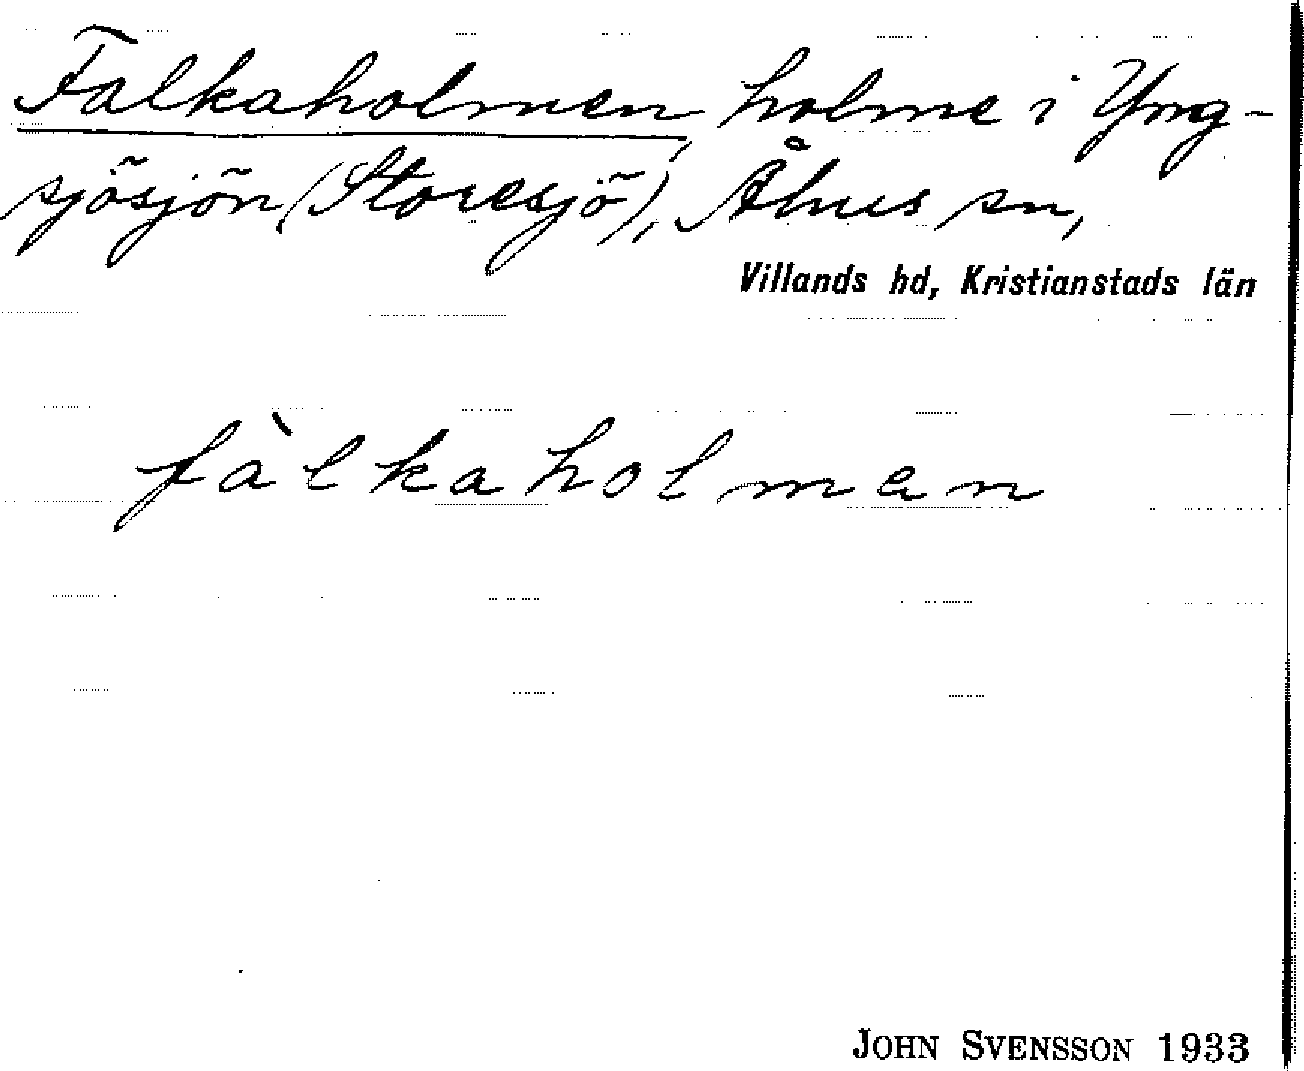 Falkaholmen, holme i Yng-
sjösjön (Storesjö), Åhus sn,
Villands hd, Kristianstads län
fàlkaholman
JOHN SVENSSON 1933